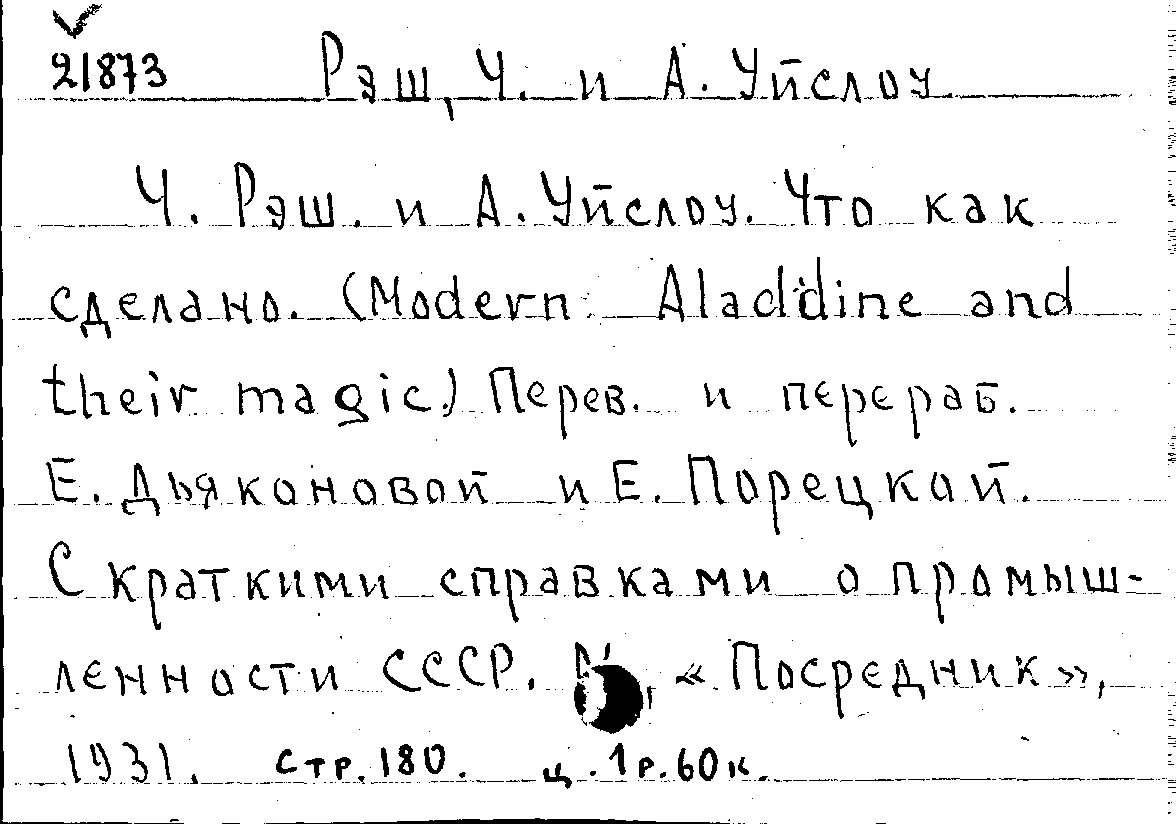 21873 Рэш, Ч. и А. Уйслоу.
Ч. Рэш. и А. Уйслоу. Что как
сделано. (Modern Aladdine and
their magic.) Перев. и перераб.
Е. Дьяконовой и Е. Порецкой.
С краткими справками о промыш-
ленности СССР. «Посредник»,
1931. стр. 180. ц. 1 р. 60 к.